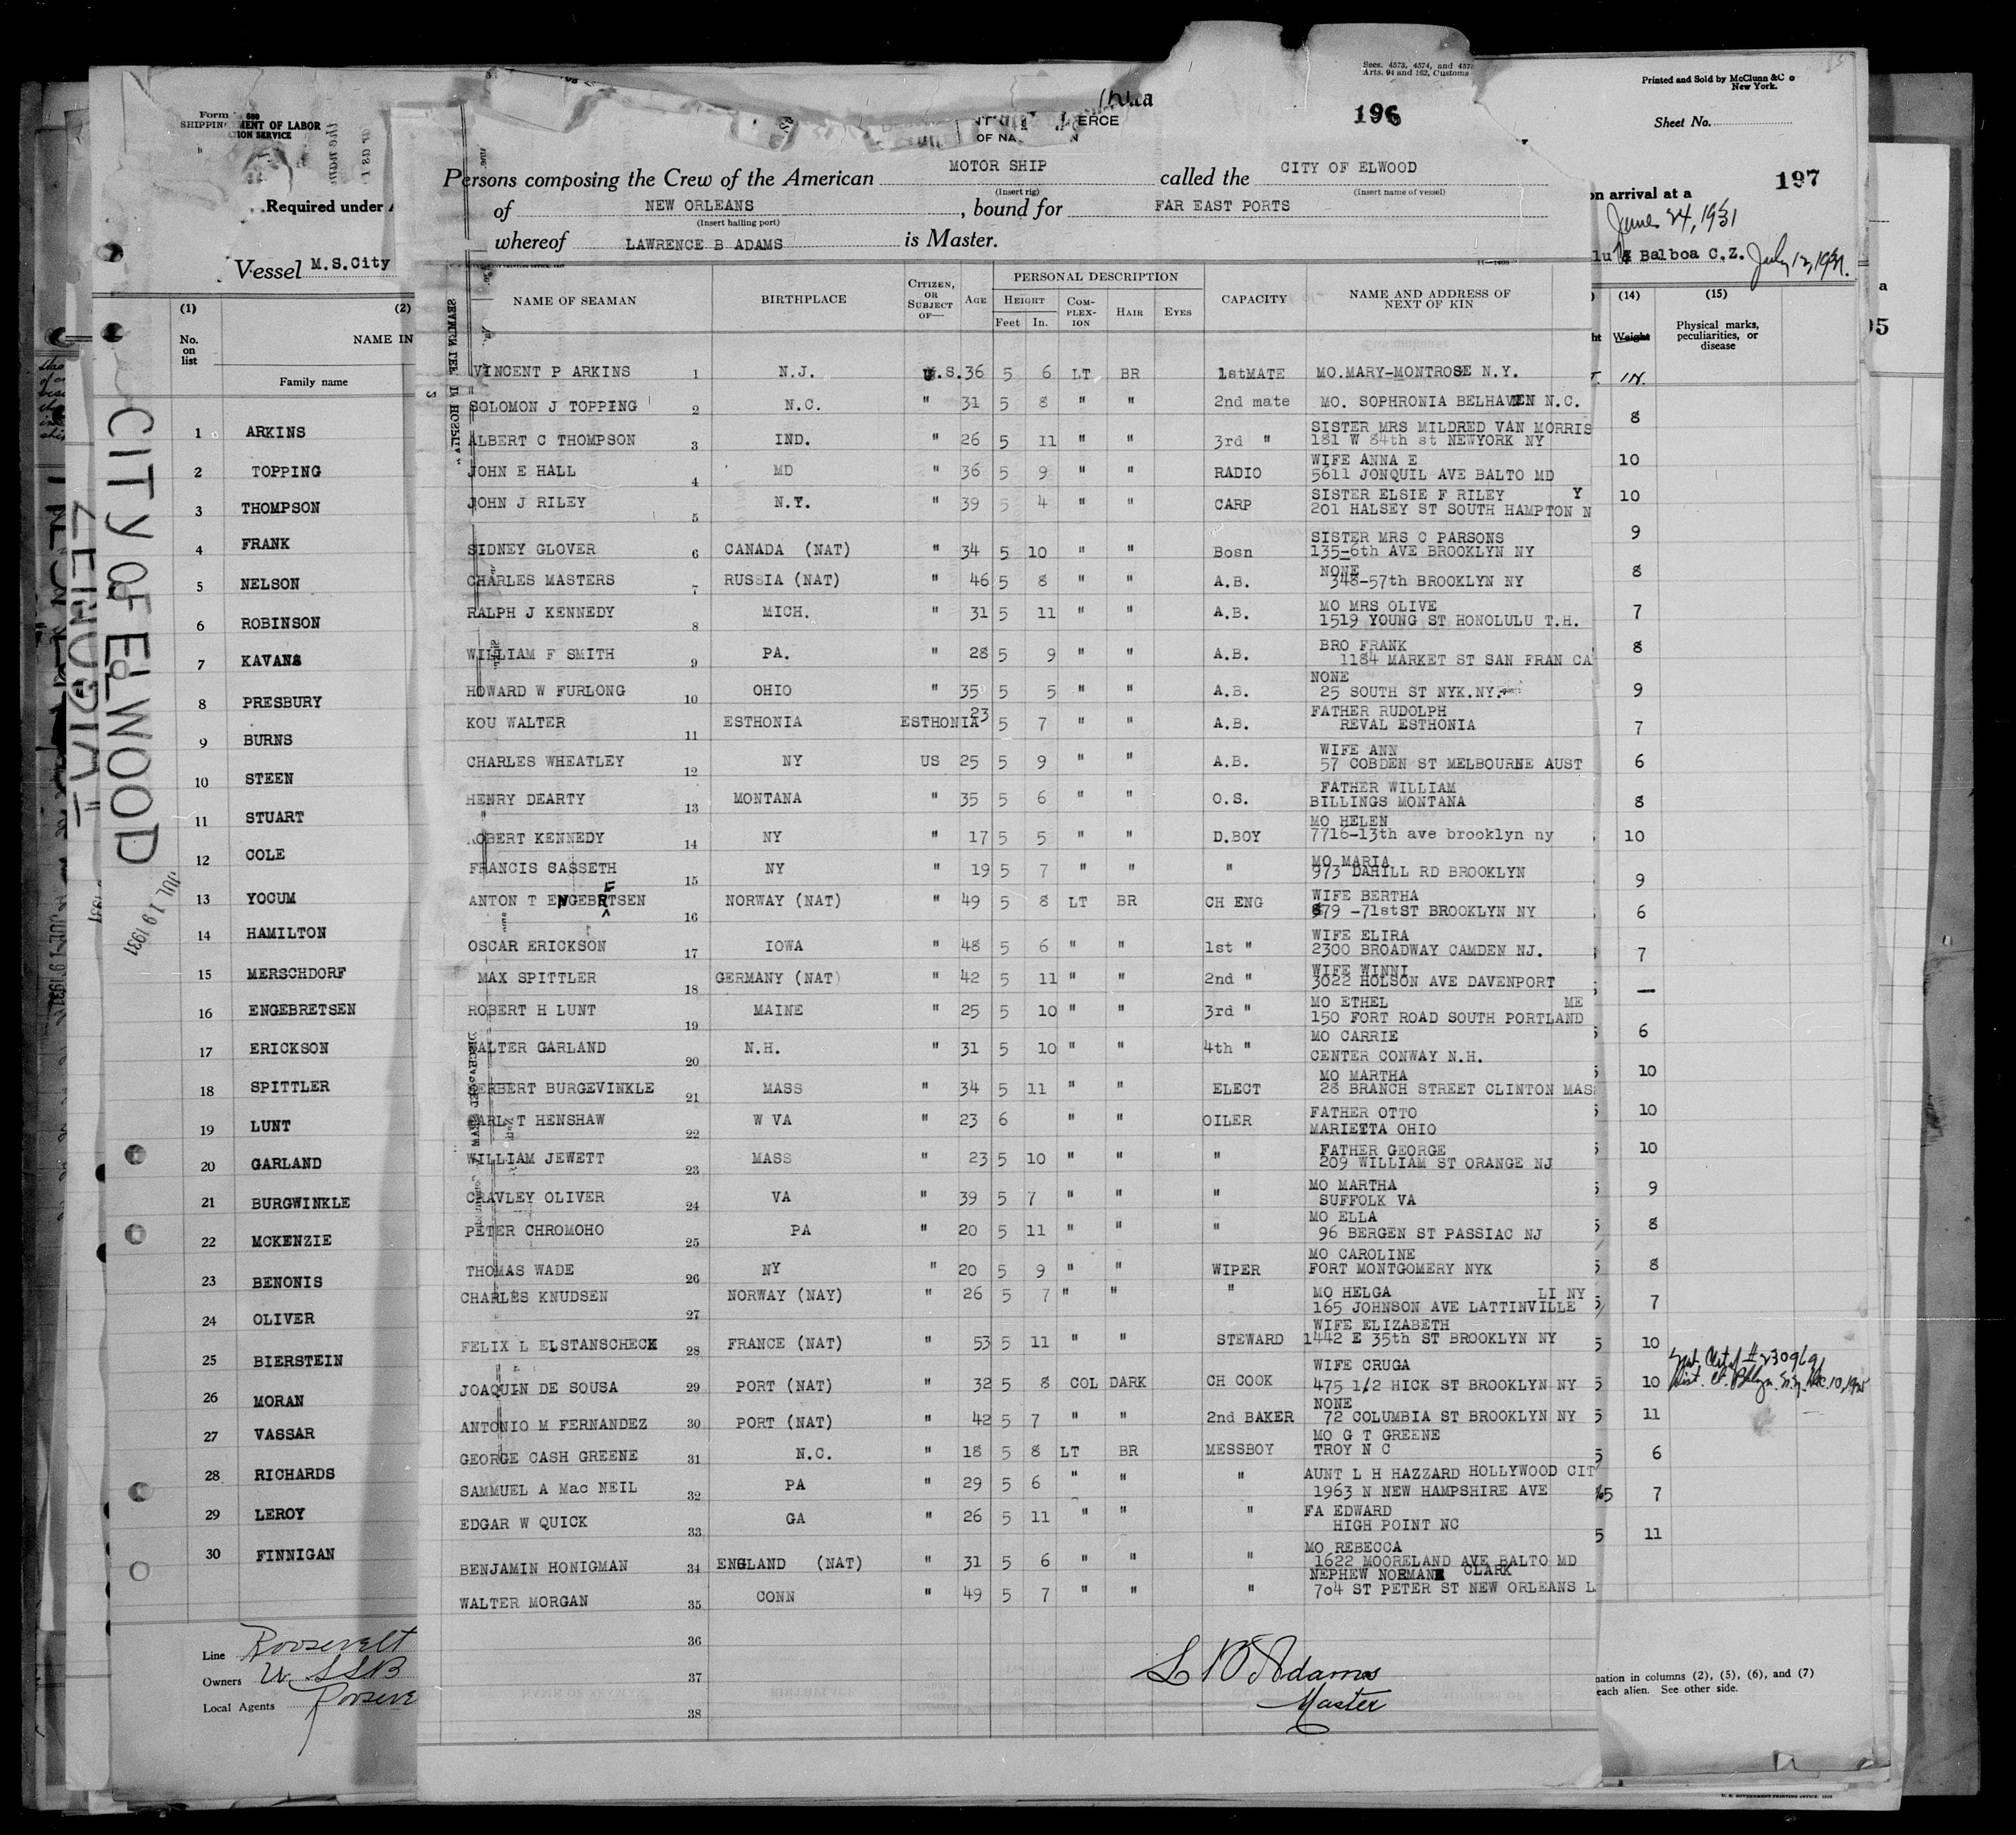 Secs. 4573, 4574, and 457
Arts. 94 and 162, Customs
Printed and Sold by McClunn & Co
New York.
Form 680
SHIPPIN
MENT OF LABOR
TION SERVICE
ERCE
OF NA
196
Sheet No.
Persons composing the Crew of the American MOTOR SHIP called the CITY OF ELWOOD
(Insert rig) (Insert name of vessel)
of NEW ORLEANS, bound for FAR EAST PORTS
(Insert hailing port)
whereof LAWRENCE B ADAMS is Master.
Required under
Vessel M.S.City
on arrival at a
197
June 24, 1931
lu & Balboa C.Z. July 12, 1931.
NAME OF SEAMAN BIRTHPLACE CITIZEN, OR SUBJECT OF— AGE PERSONAL DESCRIPTION CAPACITY NAME AND ADDRESS OF NEXT OF KIN
HEIGHT COMPLEX-ION HAIR EYES
Feet In.
VINCENT P ARKINS 1 N.J. U.S. 36 5 6 LT BR 1stMATE MO.MARY-MONTROSE N.Y.
SOLOMON J TOPPING 2 N.C. " 31 5 8 " " 2nd mate MO. SOPHRONIA BELHAVEN N.C.
ALBERT C THOMPSON 3 IND. " 26 5 11 " " 3rd " SISTER MRS MILDRED VAN MORRIS
181 W 84th st NEWYORK NY
JOHN E HALL 4 MD " 36 5 9 " " RADIO WIFE ANNA E
5611 JONQUIL AVE BALTO MD
JOHN J RILEY 5 N.Y. " 39 5 4 " " CARP SISTER ELSIE F RILEY Y
201 HALSEY ST SOUTH HAMPTON N
SIDNEY GLOVER 6 CANADA (NAT) " 34 5 10 " " Bosn SISTER MRS C PARSONS
135-6th AVE BROOKLYN NY
CHARLES MASTERS 7 RUSSIA (NAT) " 46 5 8 " " A.B. NONE
348-57th BROOKLYN NY
RALPH J KENNEDY 8 MICH. " 31 5 11 " " A.B. MO MRS OLIVE
1519 YOUNG ST HONOLULU T.H.
WILLIAM F SMITH 9 PA. " 28 5 9 " " A.B. BRO FRANK
1184 MARKET ST SAN FRAN CA
HOWARD W FURLONG 10 OHIO " 35 5 5 " " A.B. NONE
25 SOUTH ST NYK.NY.
KOU WALTER 11 ESTHONIA ESTHONIA 23 5 7 " " A.B. FATHER RUDOLPH
REVAL ESTHONIA
CHARLES WHEATLEY 12 NY US 25 5 9 " " A.B. WIFE ANN
57 COBDEN ST MELBOURNE AUST
HENRY DEARTY 13 MONTANA " 35 5 6 " " O.S. FATHER WILLIAM
BILLINGS MONTANA
ROBERT KENNEDY 14 NY " 17 5 5 " " D.BOY MO HELEN
7716-13th ave brooklyn ny
FRANCIS SASSETH 15 NY " 19 5 7 " " " MO MARIA
973 DAHILL RD BROOKLYN
ANTON T ENGEBRETSEN 16 NORWAY (NAT) " 49 5 8 LT BR CH ENG WIFE BERTHA
879 -71stST BROOKLYN NY
OSCAR ERICKSON 17 IOWA " 48 5 6 " " 1st " WIFE ELIRA
2300 BROADWAY CAMDEN NJ.
MAX SPITTLER 18 GERMANY (NAT) " 42 5 11 " " 2nd " WIFE WINNI
3022 HOLSON AVE DAVENPORT
ROBERT H LUNT 19 MAINE " 25 5 10 " " 3rd " MO ETHEL ME
150 FORT ROAD SOUTH PORTLAND
WALTER GARLAND 20 N.H. " 31 5 10 " " 4th " MO CARRIE
CENTER CONWAY N.H.
HERBERT BURGEVINKLE 21 MASS " 34 5 11 " " ELECT MO MARTHA
28 BRANCH STREET CLINTON MAS
EARL T HENSHAW 22 W VA " 23 6 " " OILER FATHER OTTO
MARIETTA OHIO
WILLIAM JEWETT 23 MASS " 23 5 10 " " " FATHER GEORGE
209 WILLIAM ST ORANGE NJ
CRAVLEY OLIVER 24 VA " 39 5 7 " " " MO MARTHA
SUFFOLK VA
PETER CHROMOHO 25 PA " 20 5 11 " " " MO ELLA
96 BERGEN ST PASSIAC NJ
THOMAS WADE 26 NY " 20 5 9 " " WIPER MO CAROLINE
FORT MONTGOMERY NYK
CHARLES KNUDSEN 27 NORWAY (NAY) " 26 5 7 " " " MO HELGA LI NY
165 JOHNSON AVE LATTINVILLE
FELIX L ELSTANSCHECK 28 FRANCE (NAT) " 53 5 11 " " STEWARD WIFE ELIZABETH
1442 E 35th ST BROOKLYN NY
JOAQUIN DE SOUSA 29 PORT (NAT) " 32 5 8 COL DARK CH COOK WIFE CRUGA
475 1/2 HICK ST BROOKLYN NY
ANTONIO M FERNANDEZ 30 PORT (NAT) " 42 5 7 " " 2nd BAKER NONE
72 COLUMBIA ST BROOKLYN NY
GEORGE CASH GREENE 31 N.C. " 18 5 8 LT BR MESSBOY MO G T GREENE
TROY N C
SAMMUEL A Mac NEIL 32 PA " 29 5 6 " " " AUNT L H HAZZARD HOLLYWOOD CIT
1963 N NEW HAMPSHIRE AVE
EDGAR W QUICK 33 GA " 26 5 11 " " " FA EDWARD
HIGH POINT NC
BENJAMIN HONIGMAN 34 ENGLAND (NAT) " 31 5 6 " " " MO REBECCA
1622 MOORELAND AVE BALTO MD
WALTER MORGAN 35 CONN " 49 5 7 " " " NEPHEW NORMAN CLARK
704 ST PETER ST NEW ORLEANS L
36
37
38
L B Adams
Master
(1) (2)
No. on list
NAME IN
Family name
1 ARKINS
2 TOPPING
3 THOMPSON
4 FRANK
5 NELSON
6 ROBINSON
7 KAVANS
8 PRESBURY
9 BURNS
10 STEEN
11 STUART
12 COLE
13 YOCUM
14 HAMILTON
15 MERSCHDORF
16 ENGEBRETSEN
17 ERICKSON
18 SPITTLER
19 LUNT
20 GARLAND
21 BURGWINKLE
22 MCKENZIE
23 BENONIS
24 OLIVER
25 BIERSTEIN
26 MORAN
27 VASSAR
28 RICHARDS
29 LEROY
30 FINNIGAN
Line Roosevelt
Owners U.S.S.B
Local Agents Rooseve
(14) (15)
Weight
Physical marks, peculiarities, or disease
IN.
8
10
10
9
8
7
8
9
7
6
8
10
9
6
7
—
6
10
10
10
9
8
8
7
10
10
11
6
7
11
Nat. Ctf. # 230969
Dist. Ct. Bklyn. N.Y. Dec. 10, 1925
mation in columns (2), (5), (6), and (7)
each alien. See other side.
U. S. GOVERNMENT PRINTING OFFICE
CITY OF ELWOOD
JUL 19 1931